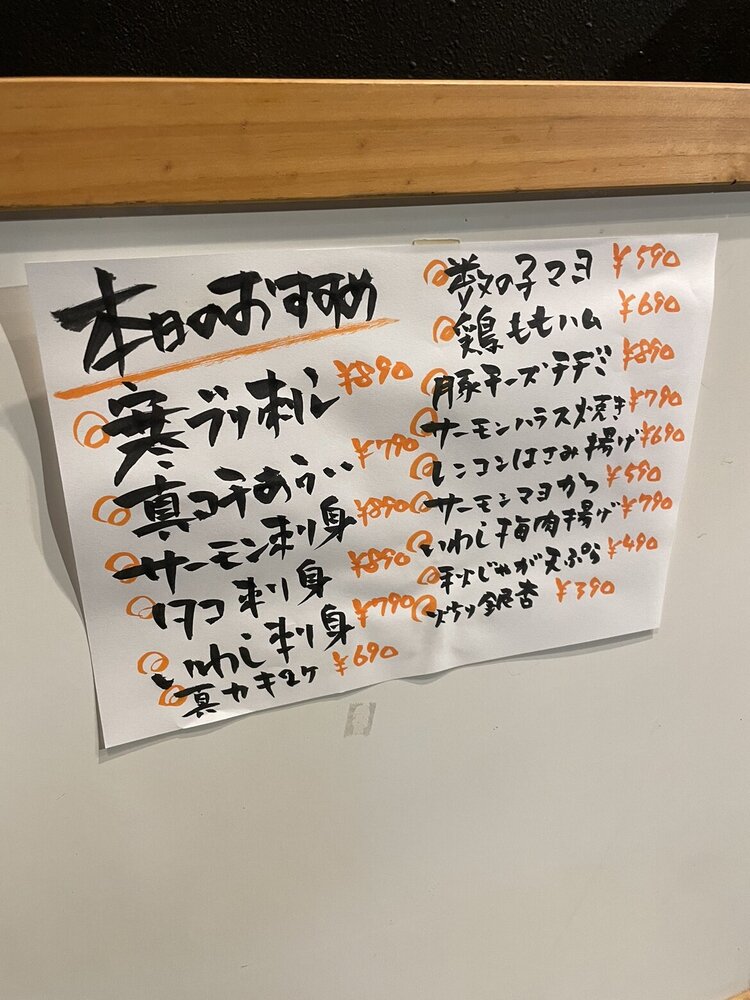 本日のおすすめ
寒ブリ刺し ¥890
真コチあらい ¥790
サーモン刺身 ¥890
タコ刺身 ¥890
いわし刺身 ¥790
真カキ2ケ ¥690
数の子マヨ ¥590
鶏ももハム ¥690
豚チーズチヂミ ¥890
サーモンハラス焼き ¥790
レンコンはさみ揚げ ¥690
サーモンマヨから ¥590
いわし梅肉揚げ ¥790
新じゃが天ぷら ¥490
銀杏 ¥390